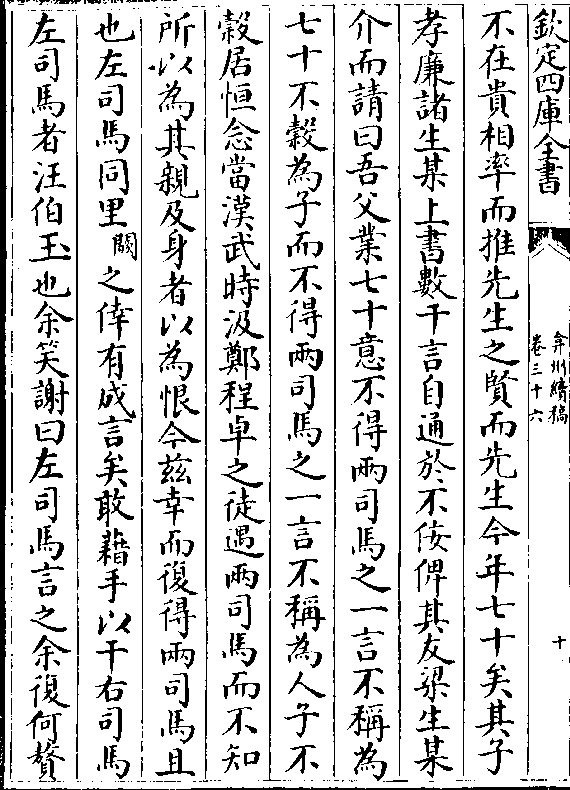 欽定四庫全書
弇州續稿
卷三十六
十
不在貴相率而推先生之賢而先生今年七十矣其子
孝廉諸生某上書數千言自通於不佞俾其友梁生某
介而請曰吾父業七十意不得兩司馬之一言不稱為
七十不穀為子而不得兩司馬之一言不稱為人子不
穀居恒念當漢武時汲鄭程卓之徒遇兩司馬而不知
所以為其親及身者以為恨今茲幸而復得兩司馬且
也左司馬同里闕之倖有成言矣敢藉手以干右司馬
左司馬者汪伯玉也余笑謝曰左司馬言之余復何贅